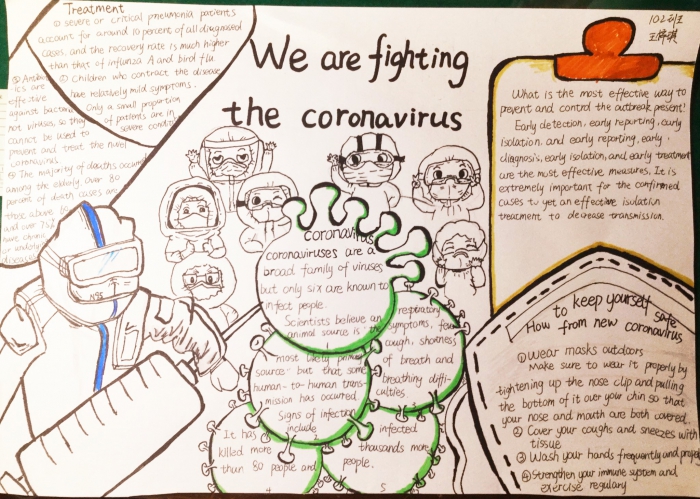 We are fighting
the coronavirus
Treatment
① severe or critical pneumonia patients
account for around 10 percent of all diagnosed
cases, and the recovery rate is much higher
than that of influenza A and bird flu.
② Children who contract the disease
have relatively mild symptoms.
Only a small proportion
of patients are in
severe condit
③ Antibiot
ics are
effective
against bacteria
not viruses, so they
cannot be used to
prevent and treat the novel
coronavirus.
④ The majority of deaths occured
among the elderly. Over 80
percent of death cases are
those above
and over 75%
have chronic
or underlying
diseases
N95
coronavirus
coronaviruses are a
broad family of viruses
but only six are known to
infect people.
Scientists believe an
animal source is the
most likely primary
source but that some
human-to-human trans-
mission has occurred.
Signs of infection
include
respiratory
symptoms, fever
cough, shortness
of breath and
breathing diffi-
culties.
It has
killed more
than 80 people and
4
infected
thousands more
people.
5
102班
What is the most effective way to
prevent and control the outbreak present!
Early detection, early reporting, early
isolation, and early reporting, early
diagnosis, early isolation, and early treatment
are the most effective measures. It is
extremely important for the confirmed
cases to yet an effective isolation
treatment to decrease transmission.
to keep yourself safe
How from new coronavirus
① Wear masks outdoors
Make sure to wear it properly by
tightening up the nose clip and pulling
the bottom of it over your chin so that
your nose and mouth are both covered.
② Cover your coughs and sneezes with
tissue
③ Wash your hands frequently and properly
④ Strengthen your immune system and
exercise regulary